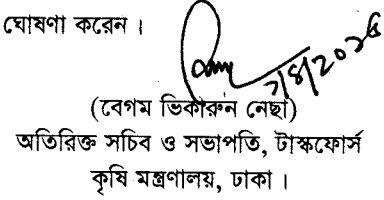 ঘোষণা করেন ।
(বেগম ভিকারুন নেছা)
অতিরিক্ত সচিব ও সভাপতি, টাস্কফোর্স
কৃষি মন্ত্রণালয়, ঢাকা ।